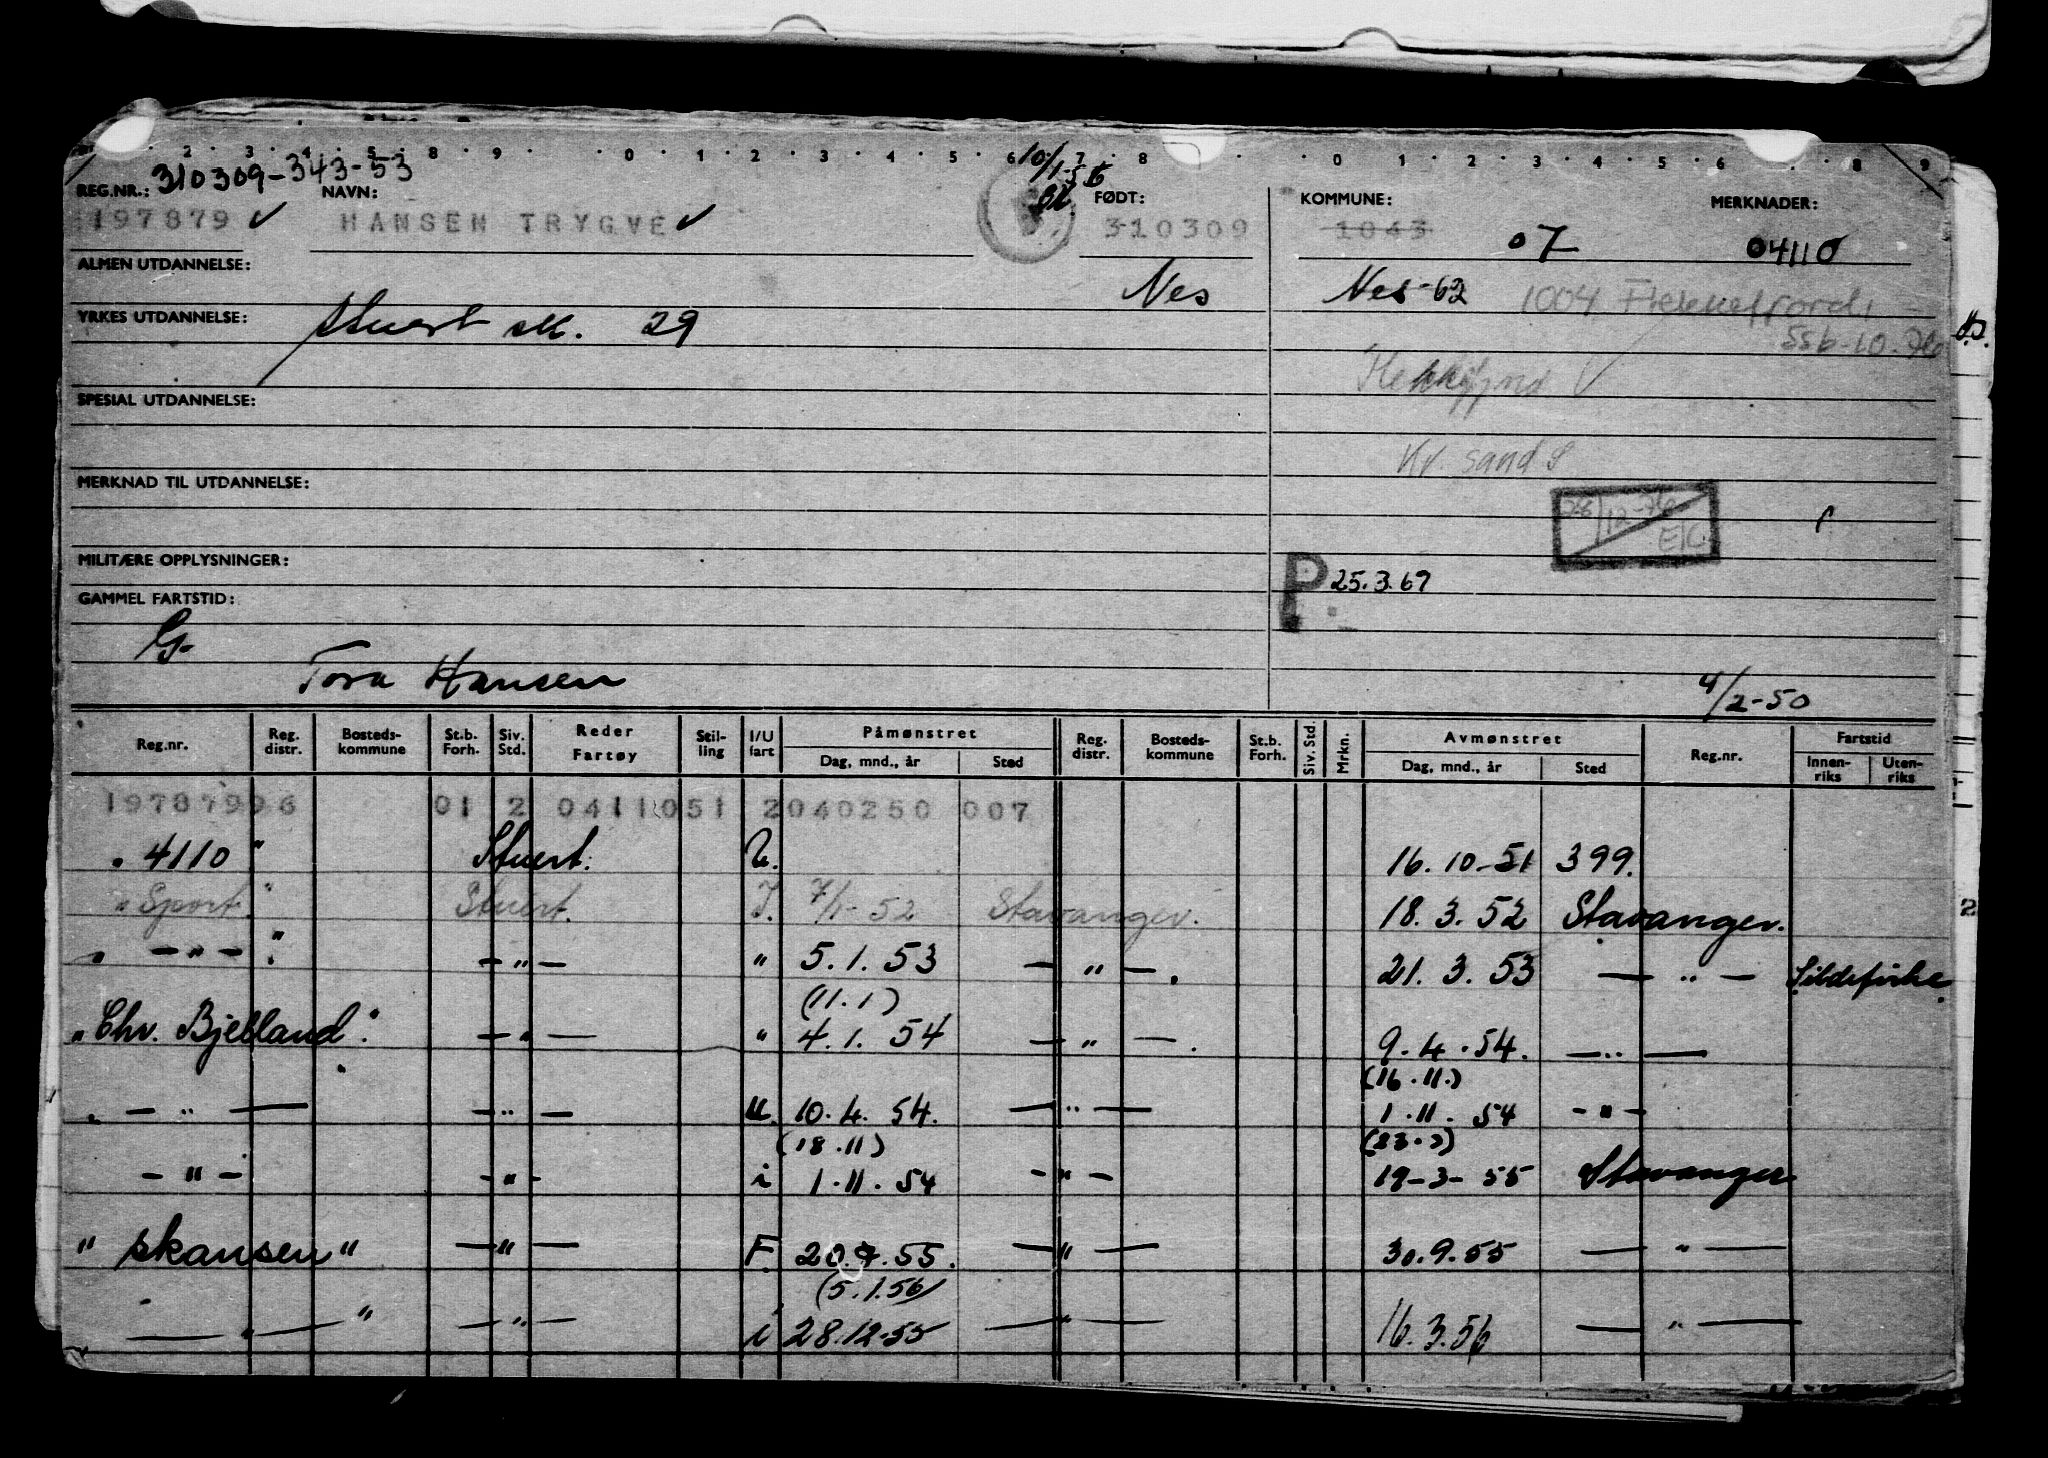 2 . 3 . 4 . 5 . 8 . 9 . . 0 . 1 . 2 . 3 . 4 . 5 . 6 7 . 8 . . 0 . 1 . 2 . 3 . 4 . 5 . 6 . . 8 . 9
310309-343-53
10/1-56
REG.NR.: NAVN: FØDT: KOMMUNE: MERKNADER:
197879 ✓ HANSEN TRYGVE ✓ 310309 1043 07 04110
ALMEN UTDANNELSE:
Nes Nes-62 1004 Flekkefjord
YRKES UTDANNELSE: Stuert sk. 29
55b-10.
SPESIAL UTDANNELSE:
Kr. sand S
MERKNAD TIL UTDANNELSE:
MILITÆRE OPPLYSNINGER:
P 25.3.69
GAMMEL FARTSTID:
G.
Tora Hansen
4/2-50
Reg.nr. Reg. distr. Bosteds- kommune St.b. Forh. Siv. Std. Reder Fartøy Stil- ling I/U fart Påmønstret Dag, mnd., år Sted Reg. distr. Bosteds- kommune St.b. Forh. Siv. Std. Mrkn. Avmønstret Dag, mnd., år Sted Reg.nr. Fartstid Innen- riks Uten- riks
19787996 01 2 0411051 2040250 007
" 4110 " Stuert. U. 16.10-51 399.
" Sport. " Stuert. I. 7/1-52 Stavanger. 18.3.52 Stavanger.
" — " — " — " — " 5.1.53 — " —. 21.3.53 — " — Sildefiske
(11.1)
"Chr. Bjelland." — " — " 4.1.54 — " —. 9.4.54. — " —
(16.11.)
" — " — — " — U. 10.4.54. — " — 1.11.54 — " —
(18.11) (23.3)
— " — — " — i 1.11.54 — " — 19-3-55 Stavanger
" Skansen " — " — F. 20.7.55. — " — 30.9.55 — " —
(5.1.56)
— " — " — " — i 28.12.55 — " — 16.3.56 — " —